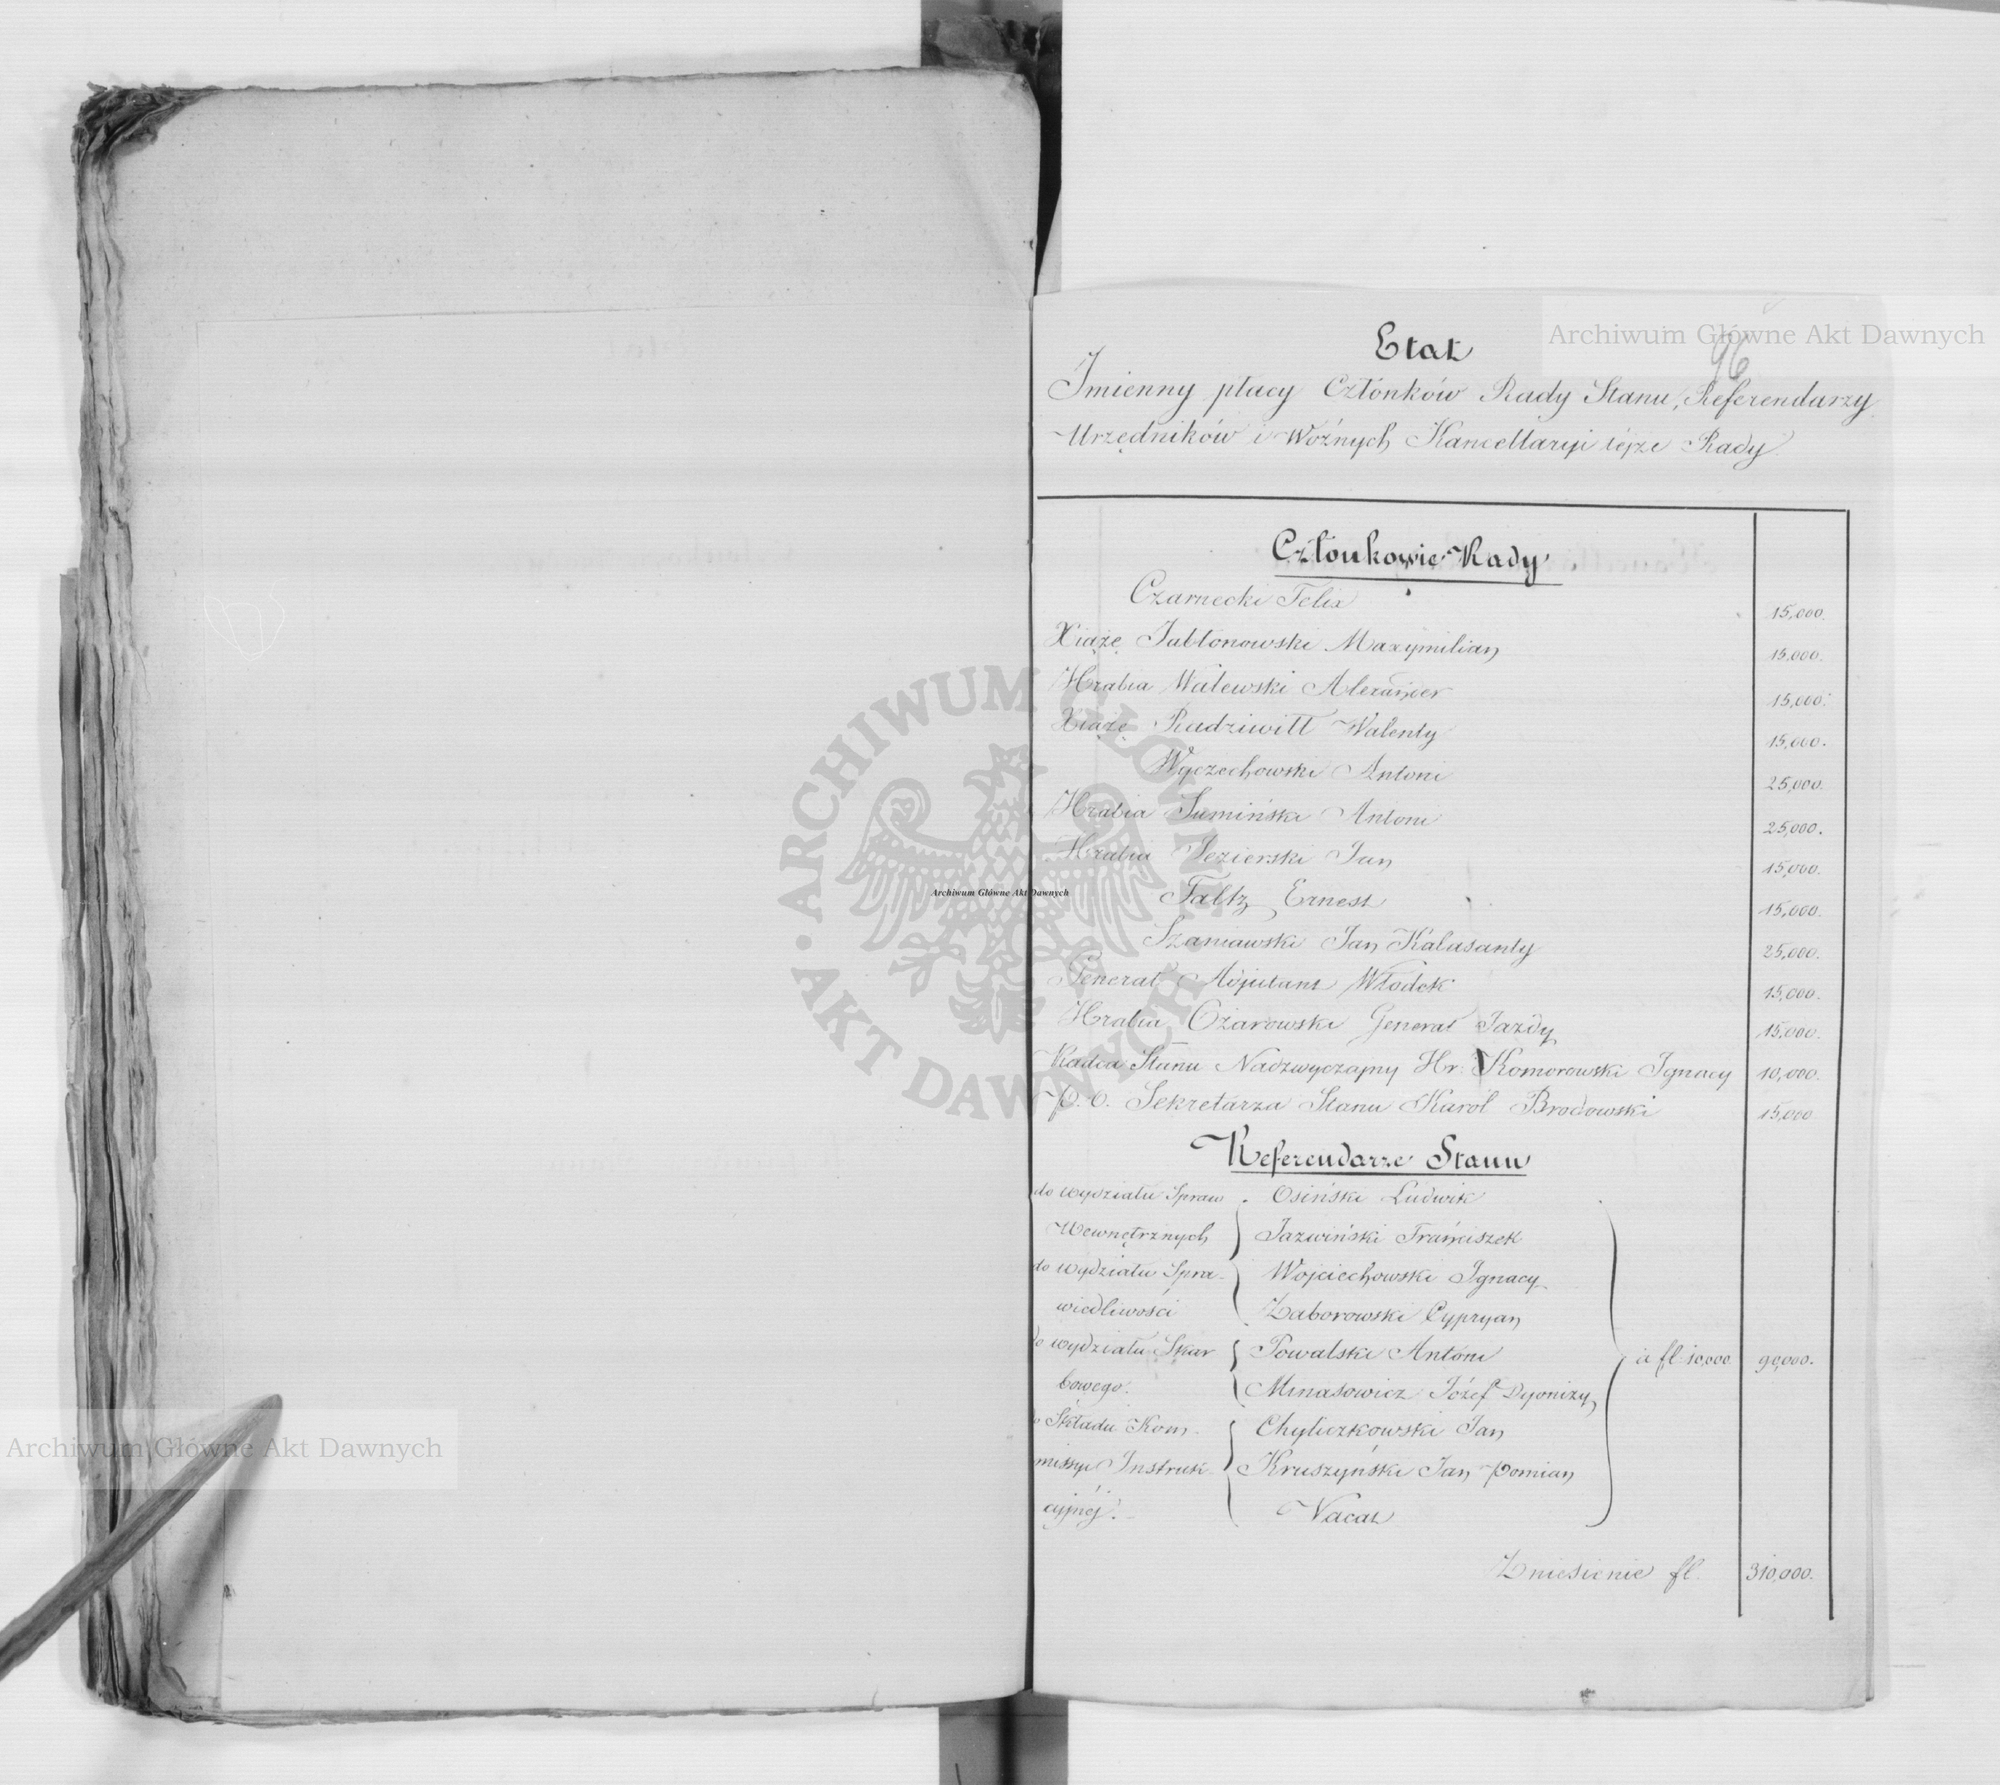 Archiwum Główne Akt Dawnych
96
Etat
Imienny płacy Członków Rady Stanu, Referendarzy
Urzędników i Woźnych Kancellaryi tejże Rady.
Członkowie Rady
Czarnecki Felix 15,000.
Xiąże Jabłonowski Maxymilian 15,000.
Hrabia Walewski Alexander 15,000.
Xiąże Radziwiłł Walenty 15,000.
Wyczechowski Antoni 25,000.
Hrabia Sumiński Antoni 25,000.
Hrabia Jezierski Jan 15,000.
Faltz Ernest 15,000.
Szaniawski Jan Kalasanty 25,000.
Generał Adjutant Włodek 15,000.
Hrabia Ożarowski Generał Jazdy 15,000.
Radca Stanu Nadzwyczajny Hr: Komorowski Ignacy 10,000.
p. o. Sekretarza Stanu Karól Brodowski 15,000
Referendarze Stanu
do wydziału Spraw Osiński Ludwik
Wewnętrznych Jazwiński Franciszek
do wydziału Spra- Wojciechowski Ignacy
wiedliwości Zaborowski Cypryan
do wydziału Skar Powalski Antoni à fl: 10,000. 90,000.
bowego. Minasowicz Józef Dyonizy
do Składu Kom- Chyliczkowski Jan
missyi Instruk- Kruszyński Jan Pomian
cyjnéj. Vacat
Zniesienie fl. 310,000.
ARCHIWUM GŁÓWNE AKT DAWNYCH
Archiwum Główne Akt Dawnych
Archiwum Główne Akt Dawnych